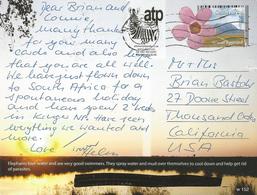 Dear Brian and
Connie,
many thanks
for your many
cards and also
that you are all well.
We have just flown down
to South Africa for a
spontaneous holiday
and have spent 2 weeks
in Kruger NP. Have seen
everything we wanted and
more.
Love
Helen
atp
Mr + Mrs
Brian Barlow
27 Doone Street
Thousand Oaks
California
USA
Elephants love water and are very good swimmers. They spray water and mud over themselves to cool down and help get rid
of parasites.
w 152